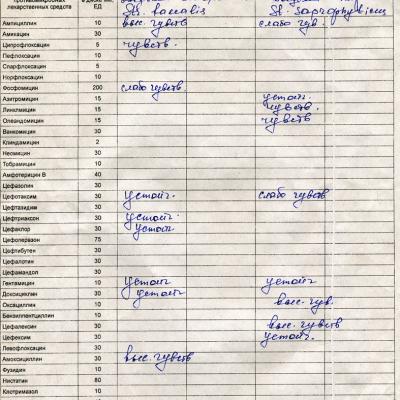 противомикробных
лекарственных средств в диске мкг
St. saprophyticus
Ампициллин 10 выс. чувств слабо чув.
Амикацин 30
Ципрофлоксацин 5 чувств.
Пефлоксацин 10
Спарфлоксацин 5
Норфлоксацин 10
Фосфомицин 200 слабо чувств.
Азитромицин 15 устойч.
Линкомицин 15 чувств.
Олеандомицин 15 чувств.
Ванкомицин 30
Клиндамицин 2
Неомицин 30
Тобрамицин 10
Амфотерицин В 40
Цефазолин 30
Цефотаксим 30 устойч. слабо чувств
Цефтазидим 30
Цефтриаксон 30 устойч.
Цефаклор 30 устойч
Цефоперазон 75
Цефтибутен 30
Цефалотин 30
Цефамандол 30
Гентамицин 10 устойч устойч
Доксициклин 30 устойч
Оксациллин 10 выс. чув.
Бензилпентциллин 10
Цефалексин 30 выс. чувств
Цефексим 30 устойч.
Левофлоксацин 30
Амоксициллин 30 выс. чувств
Фузидин 10
Нистатин 80
Клотримазол 10